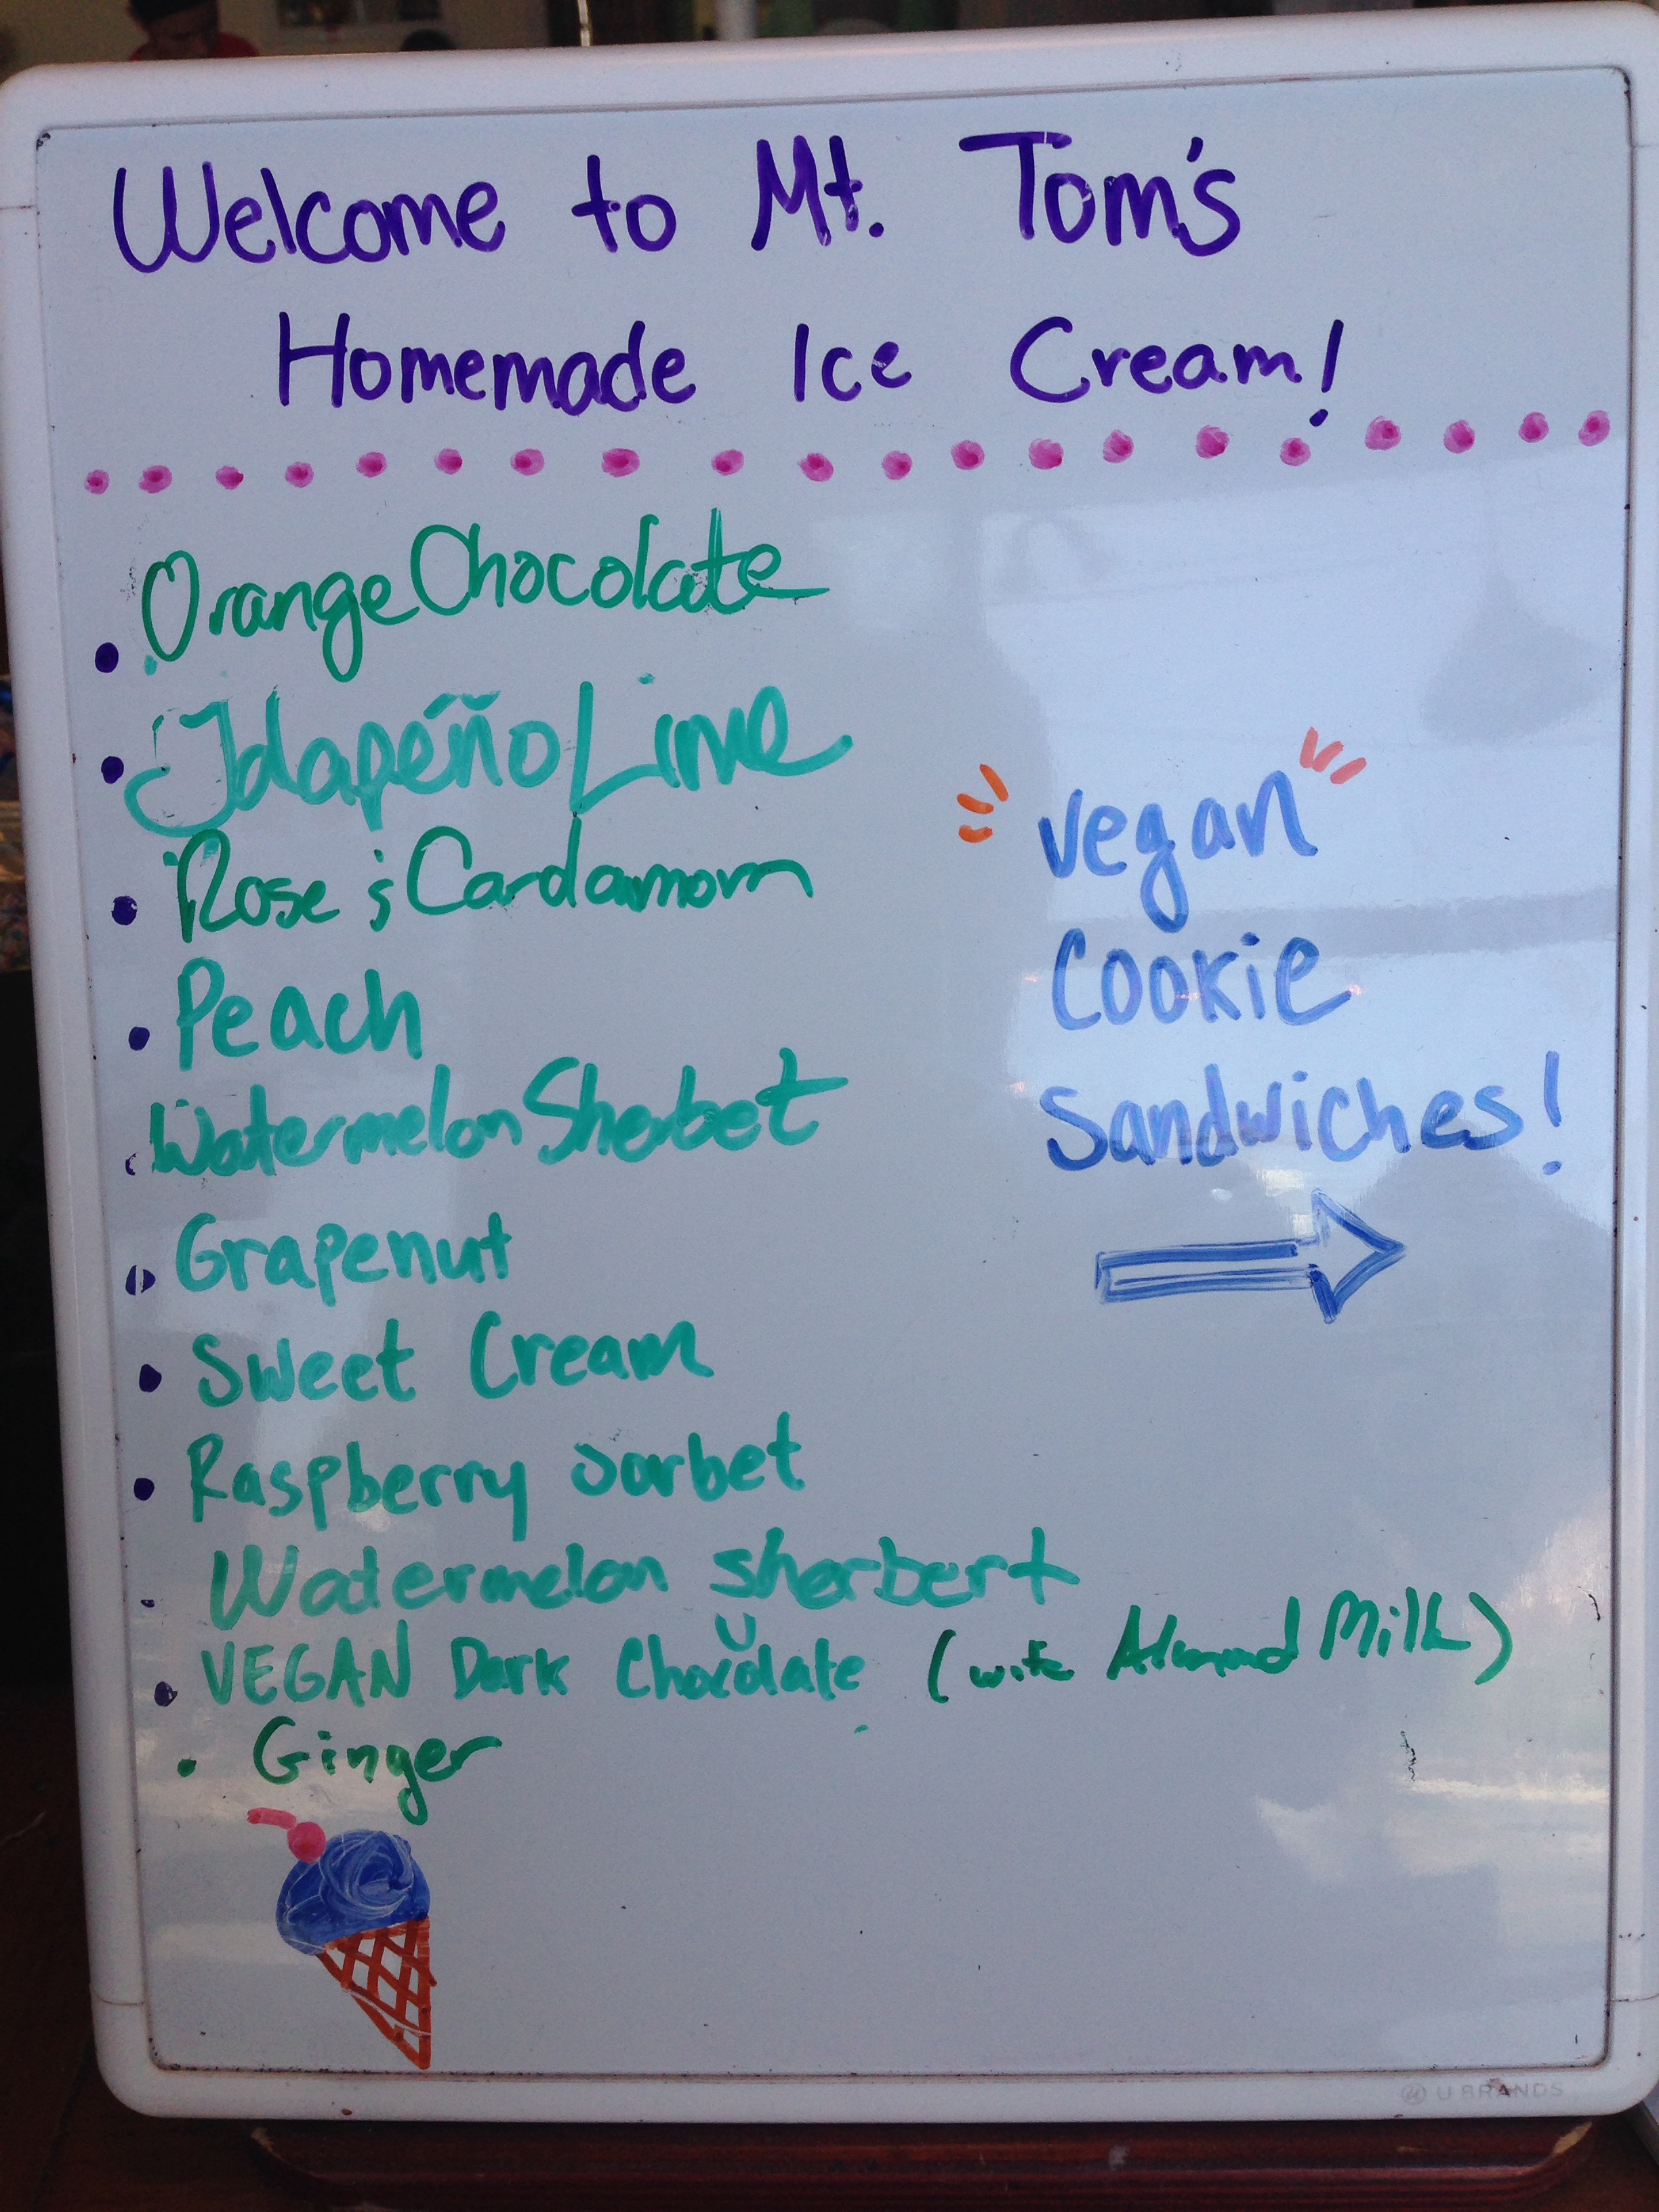 Welcome to Mt. Tom's
Homemade Ice Cream!
Orange Chocolate
Jalapéño Lime
Rose & Cardamom
Peach
Watermelon Sherbet
Grapenut
Sweet Cream
Raspberry Sorbet
Watermelon sherbert
VEGAN Dark Chocolate (with Almond Milk)
Ginger
vegan
Cookie
Sandwiches!
U BRANDS